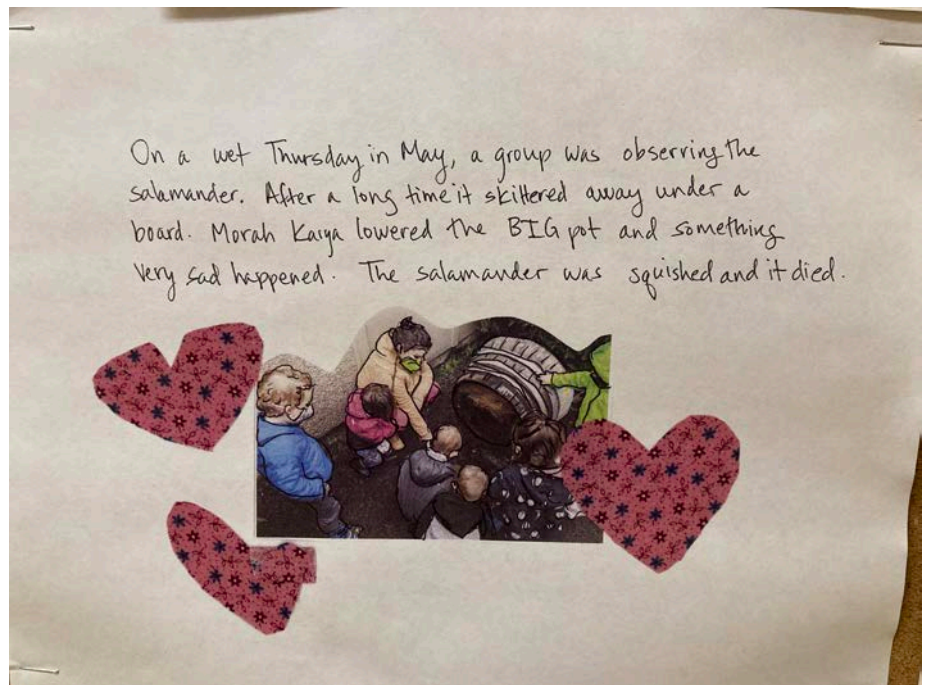 On a wet Thursday in May, a group was observing the
salamander. After a long time it skittered away under a
board. Morah Kaiya lowered the BIG pot and something
very sad happened. The salamander was squished and it died.